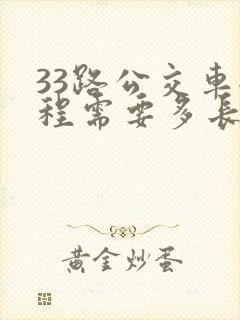 33路公交车
程需要多长
黄金炒蛋